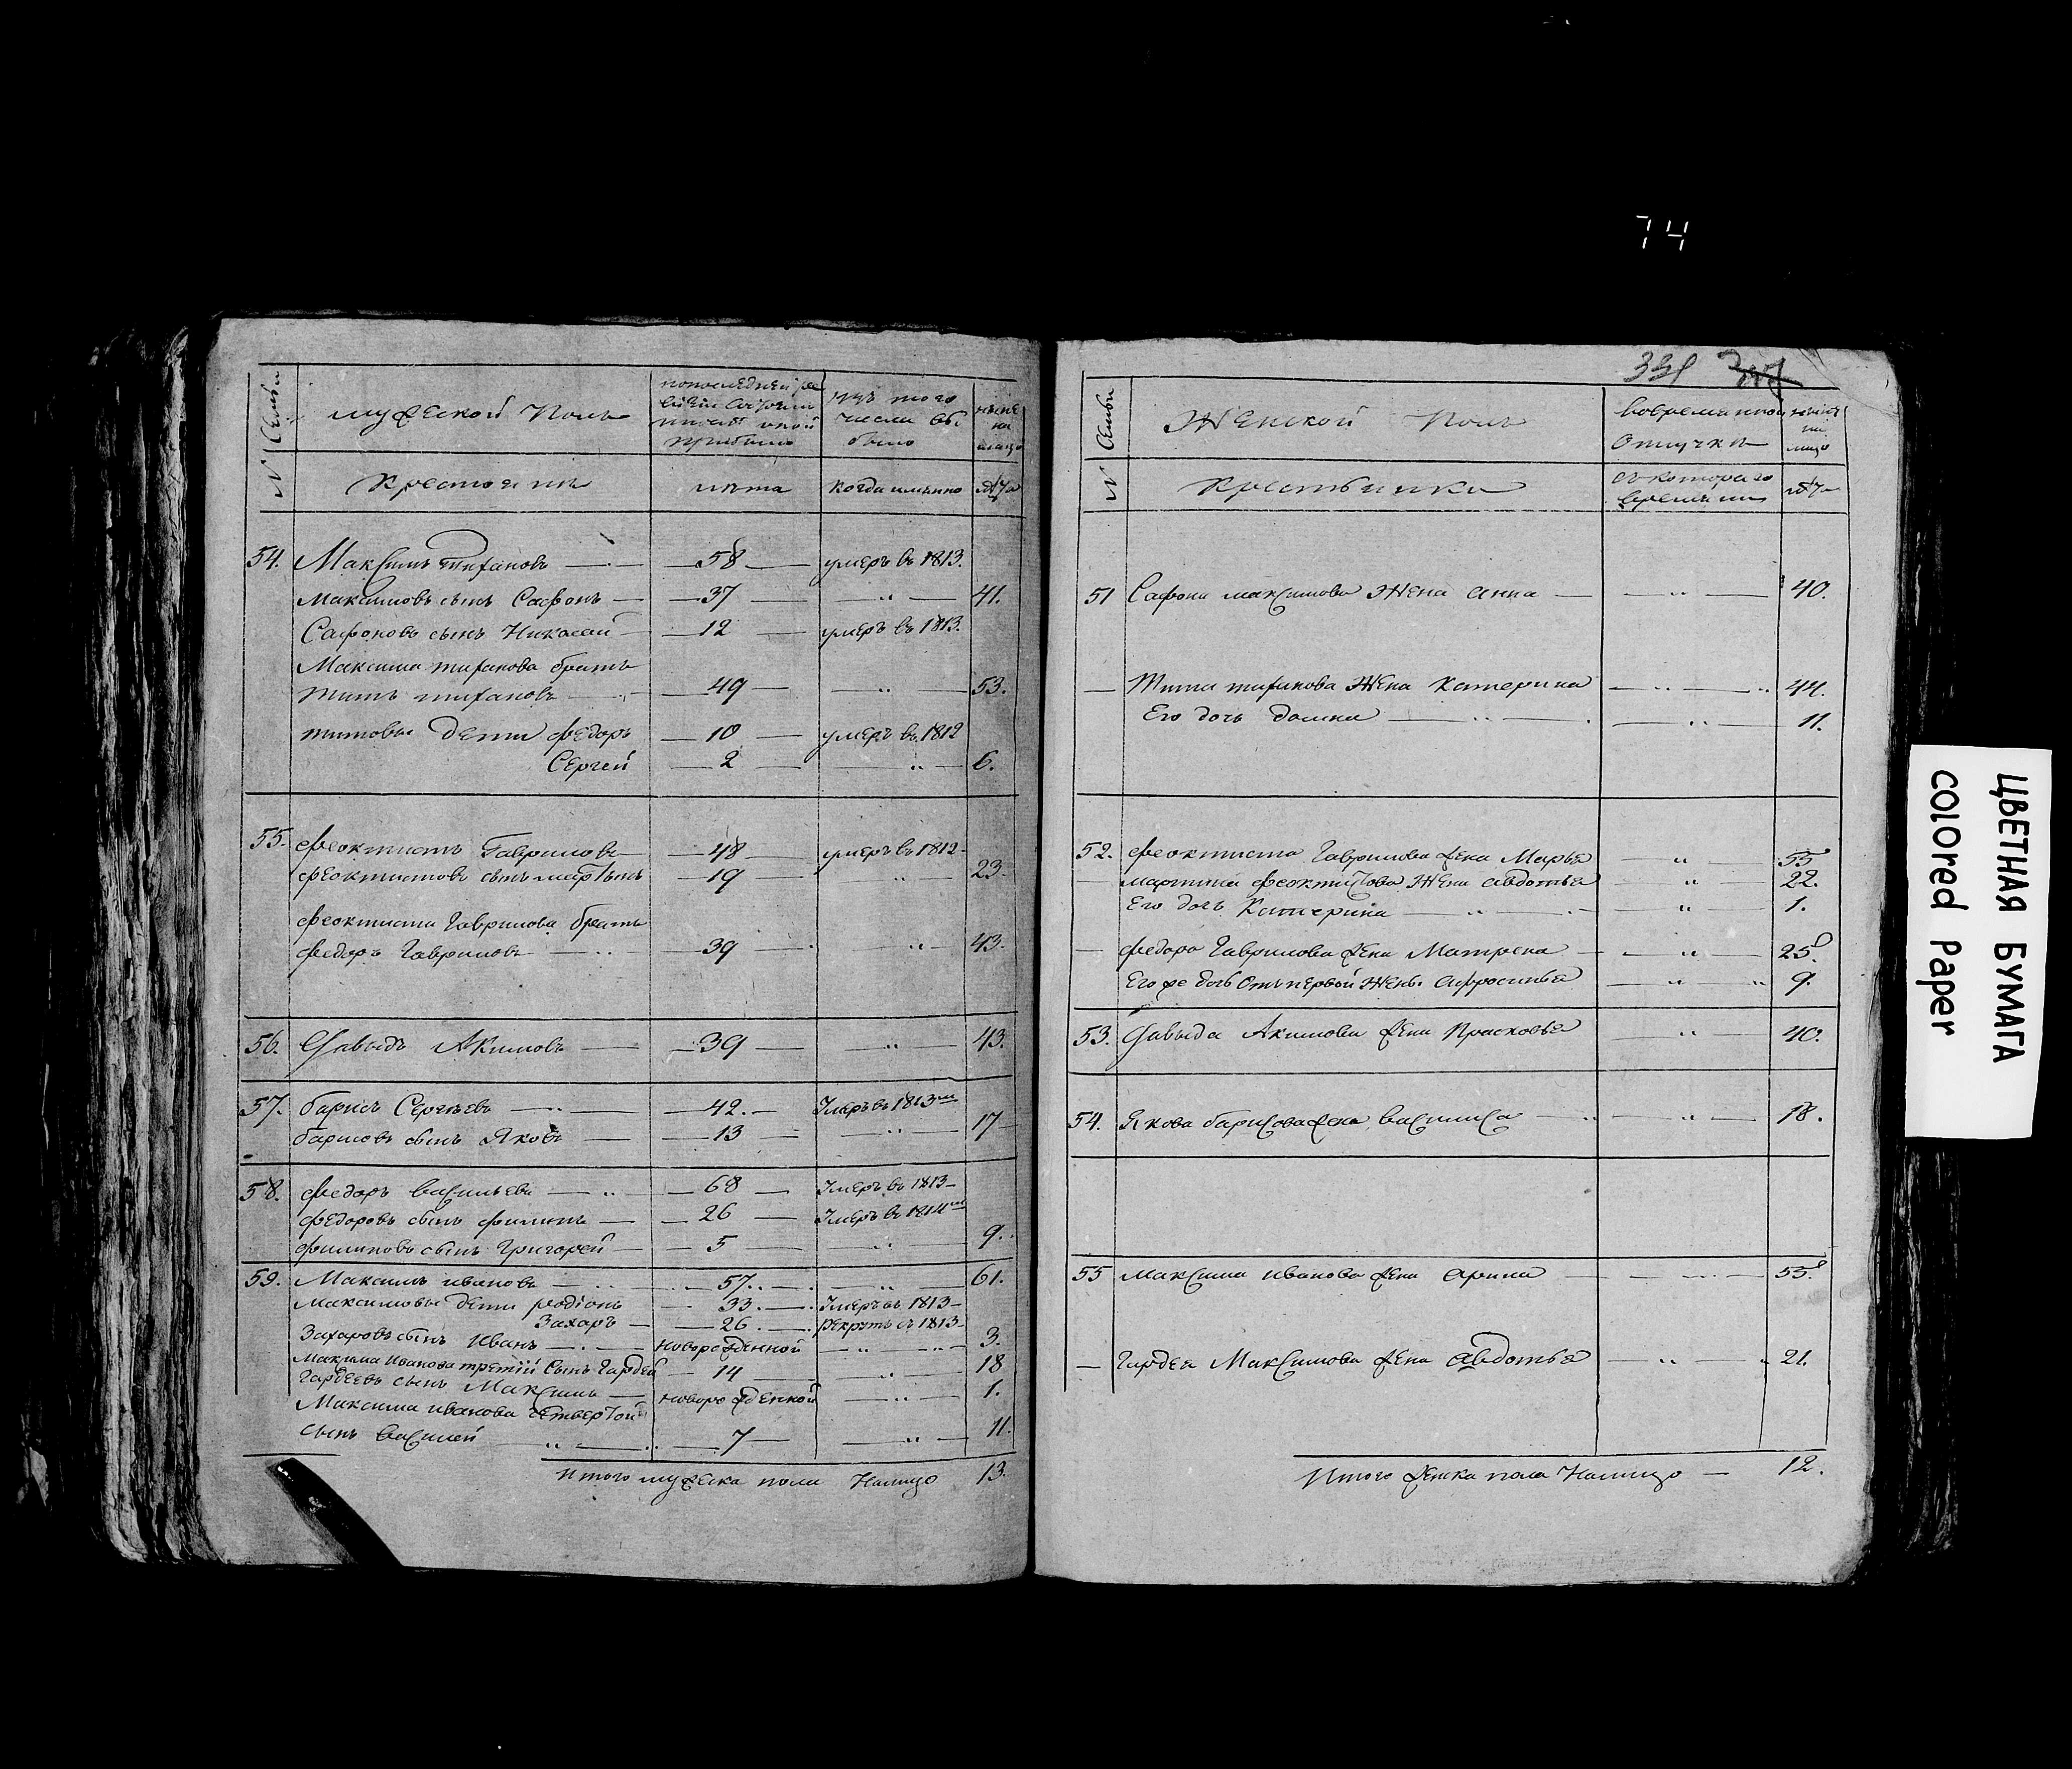 74
331
№ Семьи
мужеской Полъ
по последней ре
визiи состояло
и после оной
прибыло
изъ того
числа вы
было
ныне
на
лицо
Крестьяне
лѣта
когда имянно
лѣта
54. Максимъ тихановъ — 58 — умеръ въ 1813.
Максимовъ сынъ Сафонъ — 37 — „ — 41.
Сафоновъ сынъ Николай — 12 — умеръ въ 1813.
Максима тиханова братъ
титъ тихановъ — 49 — „ — 53.
титовы дети федоръ — 10 — умеръ въ 1812
Сергей — 2 — „ — 6.
55. феоктистъ Гавриловъ — 48 — умеръ въ 1812
феоктистовъ сынъ мартынъ — 19 — „ 23
феоктиста Гаврилова братъ
федоръ Гавриловъ — 39 — „ — 43.
56. Давыдъ Акимовъ — 39 — „ — 43.
57. барисъ Сергѣевъ — 42. — Умеръ въ 1813м
барисовъ сынъ Яковъ — 13 — „ 17
58. федоръ васильевъ — 68 — Умеръ въ 1813
федоровъ сынъ филипъ — 26 — Умеръ въ 1814м
филиповъ сынъ Григорей — 5 — „ 9.
59. Максимъ ивановъ — 57. „ 61.
Максимовы дети родiонъ — 33. — Умеръ въ 1813
Захаръ — 26. — рекрутъ съ 1813
Захаровъ сынъ Иванъ — новорожденной — „ — 3.
Максима Иванова третiй сынъ Гардей — 14 — „ 18
Гардеевъ сынъ Максимъ — новорожденной — „ 1.
Максима иванова четвертой
сынъ василей — 7 — „ — 11.
Итого мужеска пола Налицо 13.
№ Семьи
Женской Полъ
Вовременной
Отлучкѣ
ныне
на
лицо
Крестьянки
съ котораго
времяни
лѣта
51 Сафона максимова Жена анна — „ — 40.
— Тита тиханова Жена катерина — „ — 44.
Его дочь домна — „ — 11.
52. феоктиста Гаврилова жена Марья — „ — 55
мартина феоктистова Жена авдотья — „ — 22.
Его дочь Катерина — „ — 1.
— федора Гаврилова жена Матрена — „ — 25.
Его же дочь отъ первой Жены афросинья — „ 9.
53. Давыда Акимова жена Прасковья — „ 40.
54. Якова барисова жена василиса — „ — 18.
55 Максима иванова жена арина — „ — 55.
— Гардея Максимова жена авдотья — „ 21.
Итого женска пола Налицо — 12.
ЦВЕТНАЯ БУМАГА
COlOred Paper